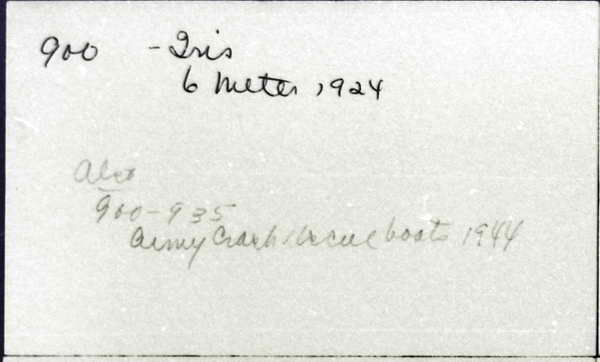 900 - Iris
6 Meter 1924
Also
900-935
Army Crash rescue boats 1944